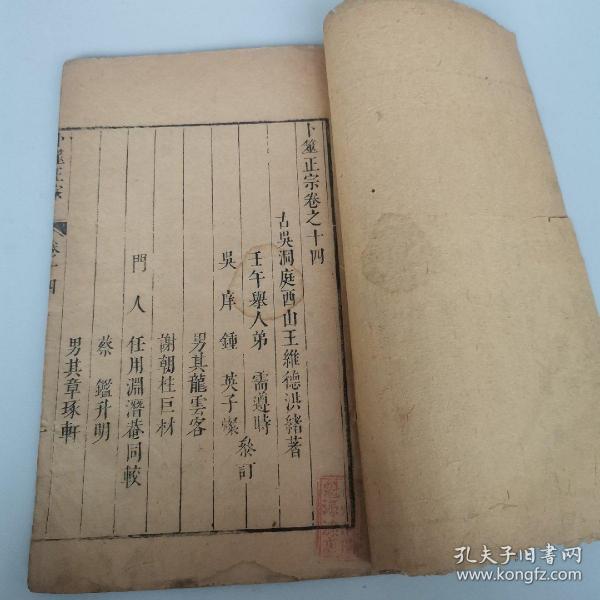 卜筮正宗卷之十四
古吳洞庭西山王維德洪緒著
壬午舉人弟 需遵時
吳庠 鍾英子燦 叅訂
男其龍雲客
謝朝柱巨材
門人 任用淵潛菴同較
蔡 鑑升明
男其章琢軒
卜筮正宗 卷十四
孔夫子旧书网
www.kongfz.com